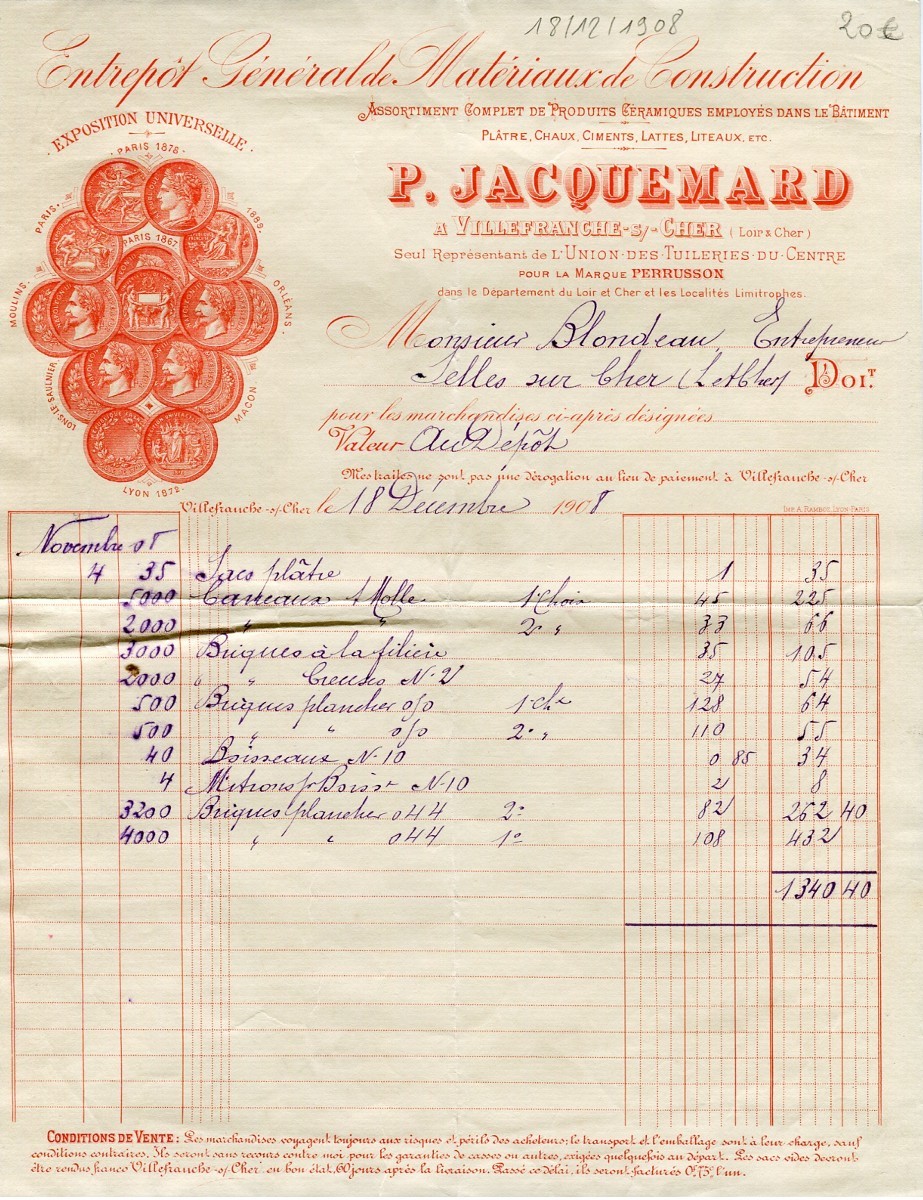 18/12/1908
20€
Entrepôt Général de Matériaux de Construction
Assortiment Complet de Produits Céramiques employés dans le Bâtiment
Plâtre, Chaux, Ciments, Lattes, Liteaux, etc.
EXPOSITION UNIVERSELLE
PARIS 1878
PARIS.
1889.
PARIS 1867.
MOULINS.
ORLÉANS
LONS-LE-SAULNIER
MACON
LYON 1872
P. JACQUEMARD
A VILLEFRANCHE-S/-CHER (Loir & Cher)
Seul Représentant de L'Union-des-Tuileries-du-Centre
POUR LA MARQUE PERRUSSON
dans le Département du Loir et Cher et les Localités Limitrophes.
Monsieur Blondeau, Entrepreneur
Selles sur Cher (L et Cher) Doit
pour les marchandises ci-après désignées
Valeur Au Dépôt
Mes traites ne sont pas une dérogation au lieu de paiement à Villefranche-s/-Cher
Villefranche-s/-Cher le 18 Décembre 1908
IMP. A. RAMBOZ, LYON-PARIS
Novembre 08
4 35 Sacs plâtre 1 35
5000 Carreaux 1 Molle 1° Choix 45 225
2000 " " 2° " 33 66
3000 Briques à la filière 35 105
2000 " " Creuses N° 2 27 54
500 Briques plancher 0/0 1° Ch 128 64
500 " " 0/0 2° " 110 55
40 Boisseaux N° 10 0 85 34
4 Mitrons pr Boissx N° 10 2 8
3200 Briques plancher 044 2° 82 262 40
4000 " " 044 1° 108 432
1340 40
CONDITIONS DE VENTE: Les marchandises voyagent toujours aux risques et périls des acheteurs; le transport et l'emballage sont à leur charge, sauf
conditions contraires. Ils seront sans recours contre moi pour les garanties de casses ou autres, exigées quelquefois au départ. Les sacs vides devront
être rendus franco Villefranche-s/-Cher, en bon état, 60 jours après la livraison. Passé ce délai, ils seront facturés 0f75 l'un.